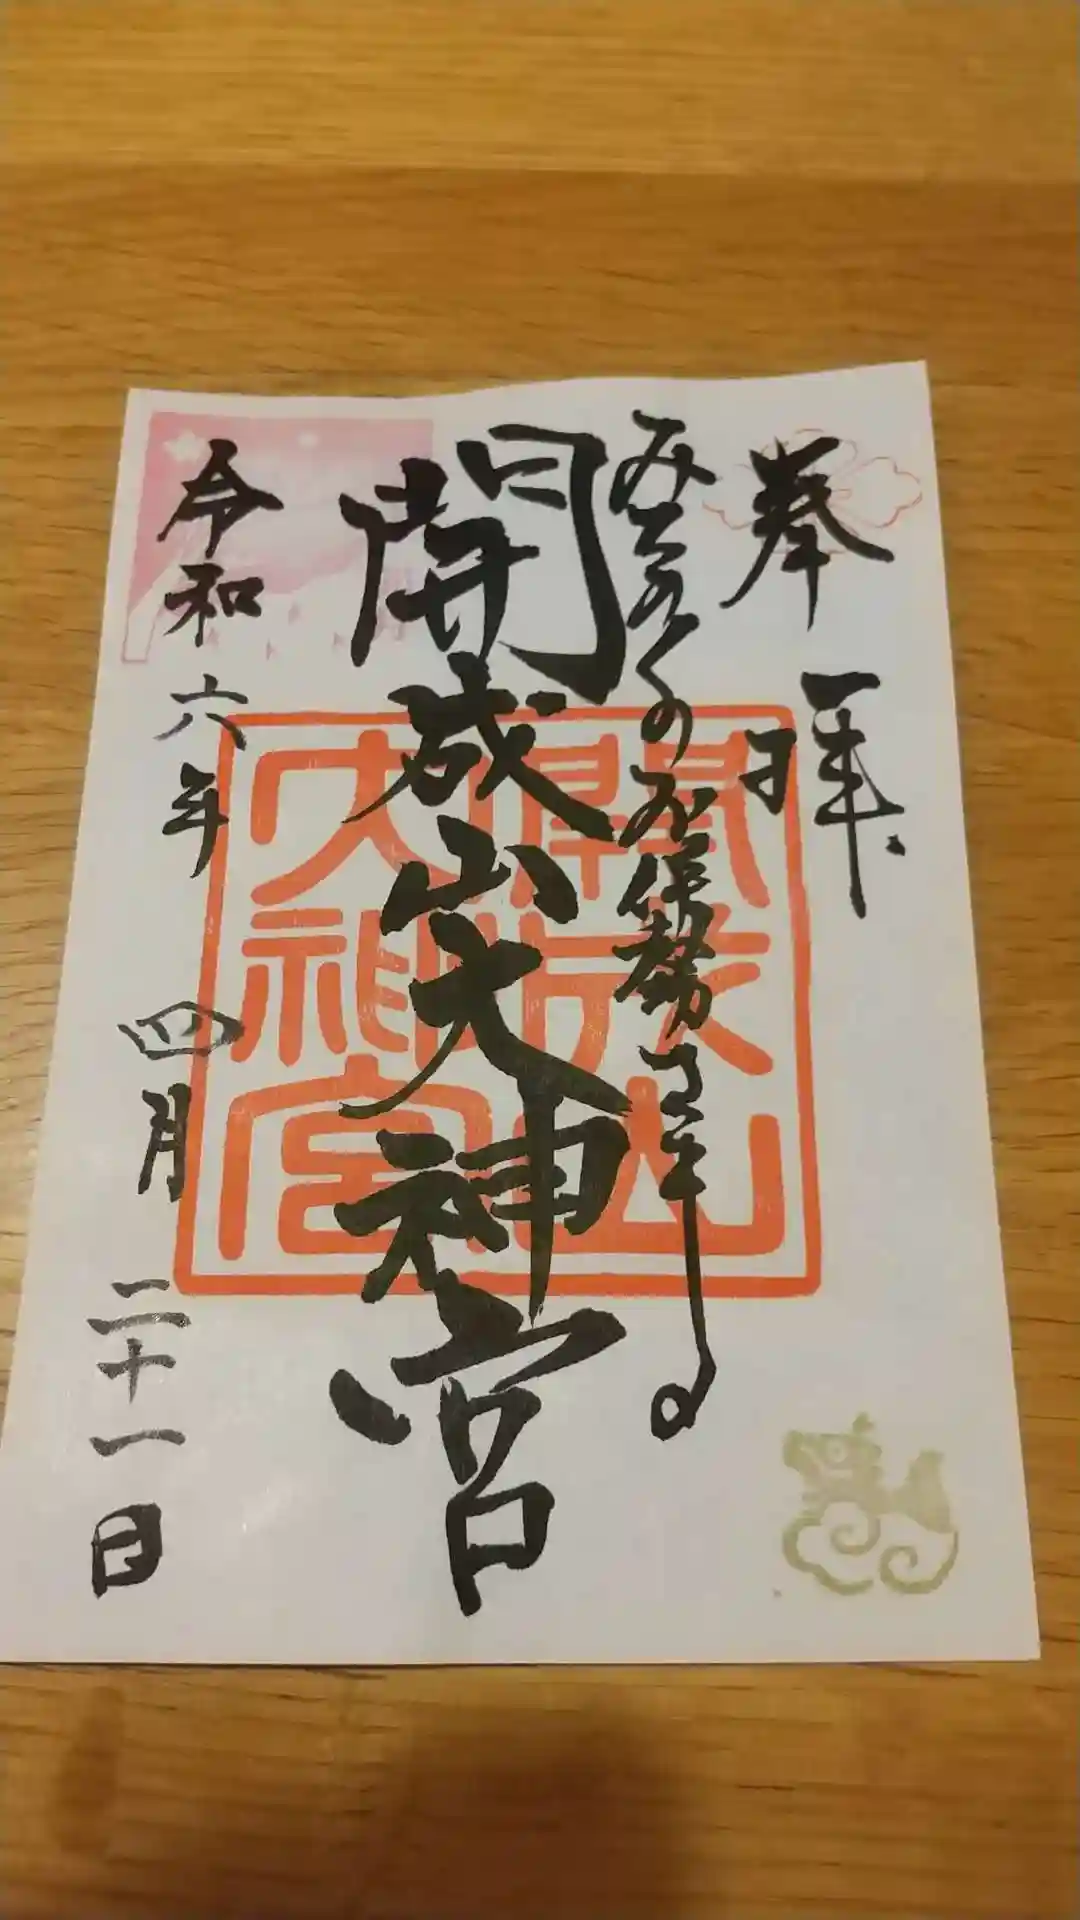 奉拝
みちのくのお伊勢さま
開成山大神宮
開成山大神宮
令和六年四月二十一日